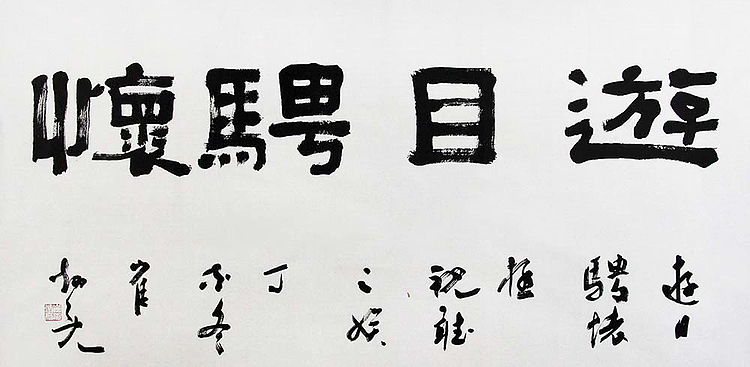 遊目騁懷
遊目
騁懷
極
視聽
之娛
丁
亥冬
崔